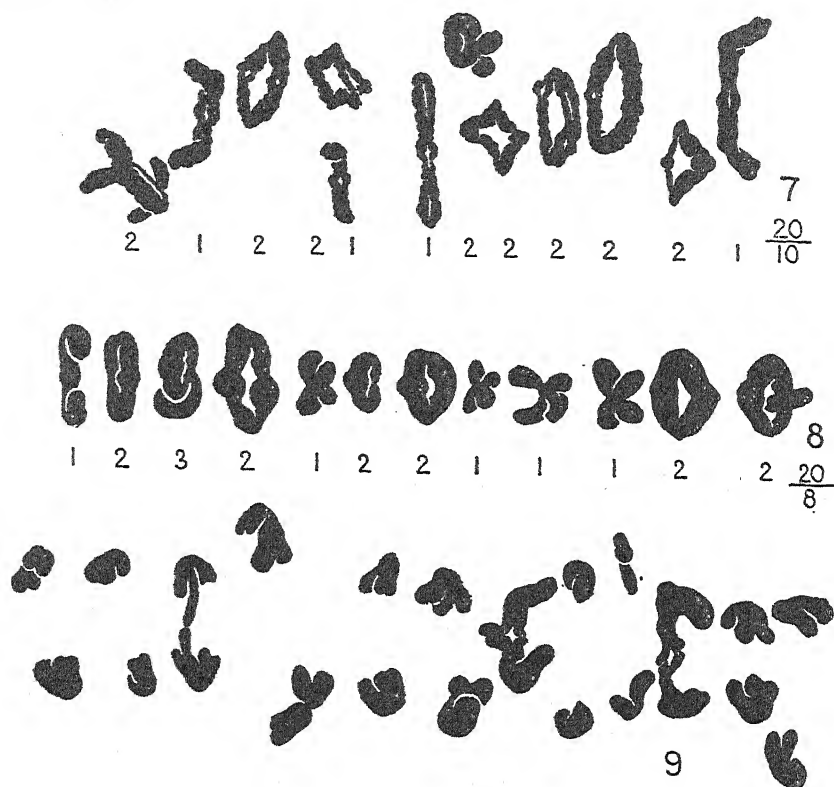 7
2 1 2 2 1 1 2 2 2 2 2 1 20/10
8
1 2 3 2 1 2 2 1 1 1 2 2 20/8
9